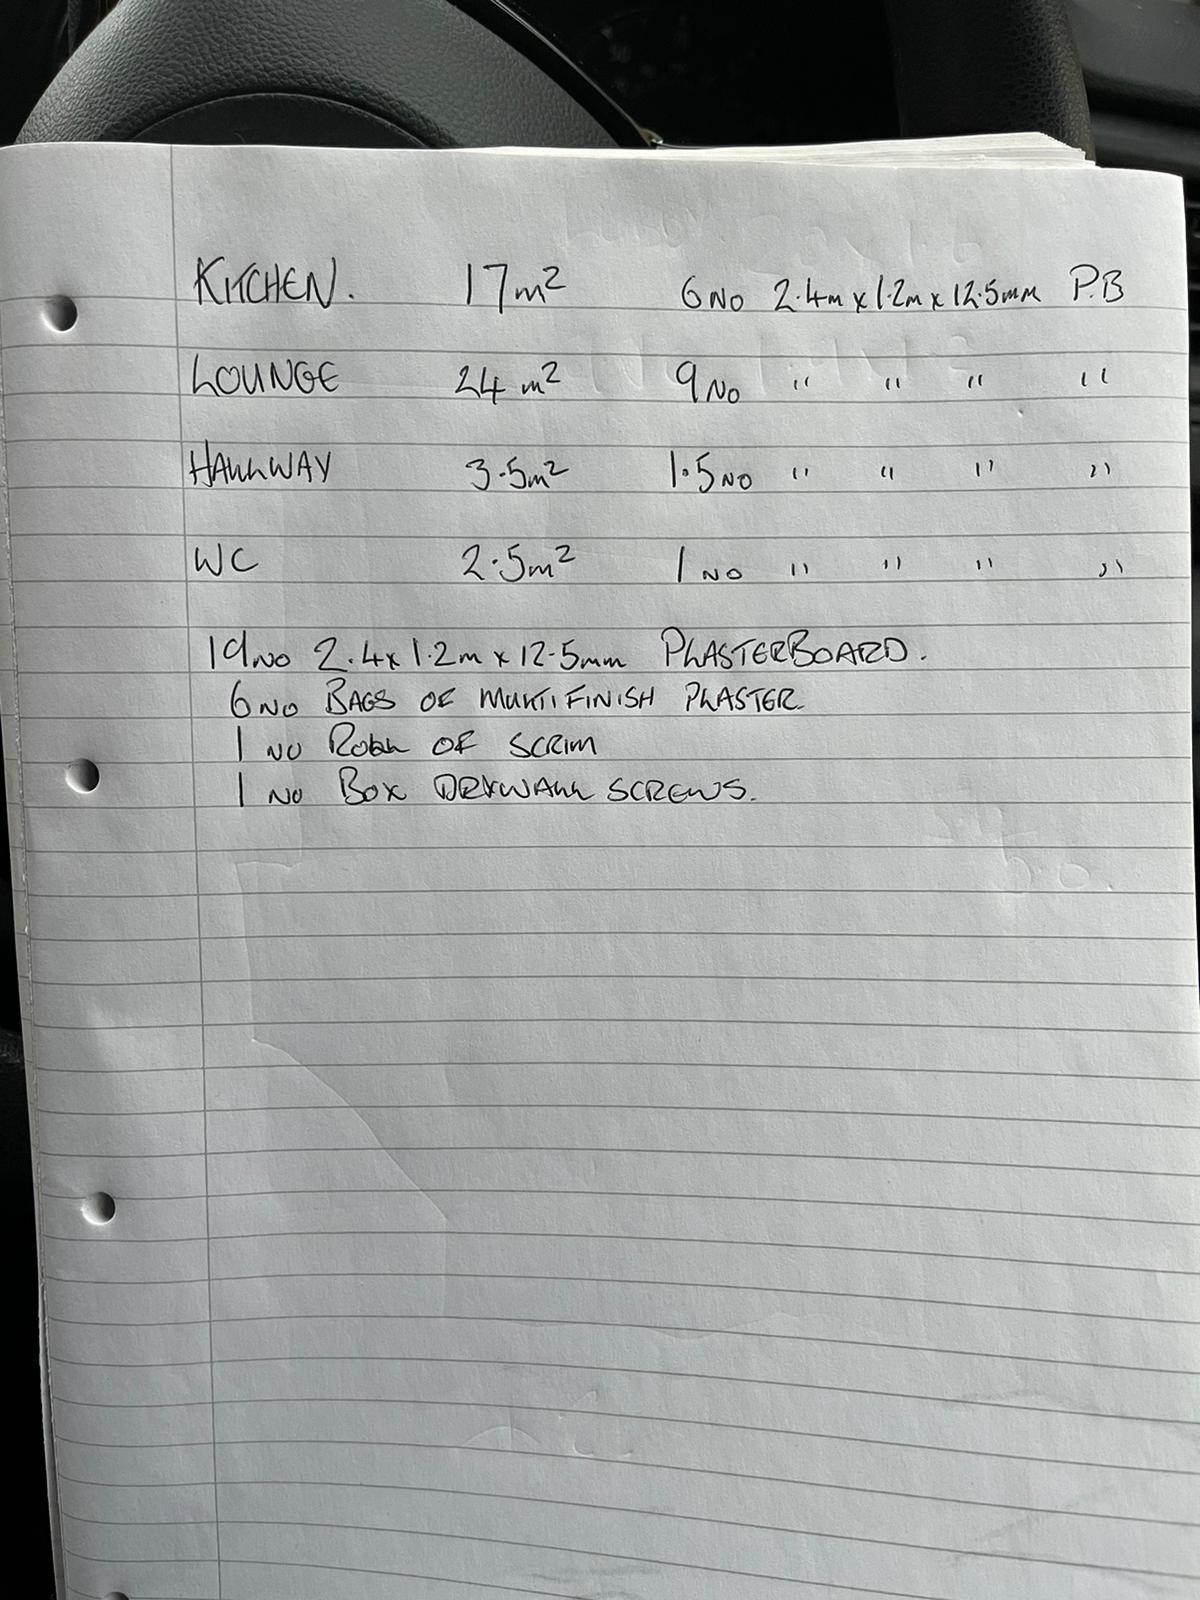 KITCHEN. 17m² 6 NO 2.4m x 1.2m x 12.5mm P.B
LOUNGE 24 m² 9 NO " " " "
HALLWAY 3.5m² 1.5 NO " " " "
WC 2.5m² 1 NO " " " "
19 NO 2.4 x 1.2m x 12.5mm PLASTERBOARD.
6 NO BAGS OF MULTI FINISH PLASTER.
1 NO ROLL OF SCRIM
1 NO BOX DRYWALL SCREWS.